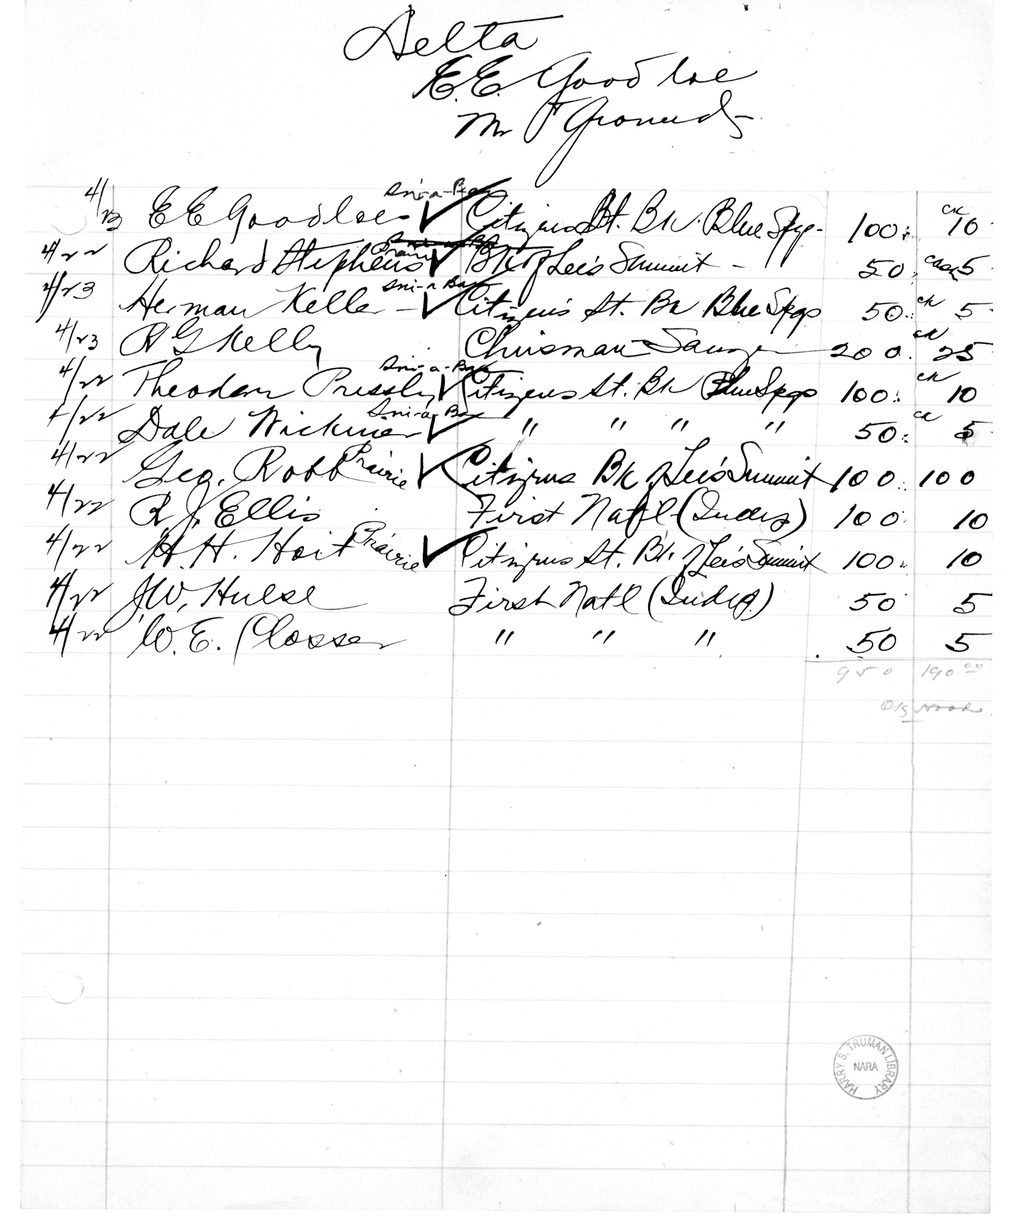 Delta
E.E. Goodloe
Mr Grounds
4/23 E E Goodloe Sni-a-Bar ✓ Citizens St. Bk. Blue Spgs- 100 ck 10
4/22 Richard Stephens Prairie ✓ Bk of Lee's Summit - 50 cash 5
4/23 Herman Keller Sni-a Bar ✓ Citizen's St. Bk Blue Spgs 50 ck 5
4/23 R G Kelly Chrisman Sawyer 200 ck 25
4/22 Theodore Pressly Sni-a-Bar ✓ Citizens St. Bk Blue Spgs 100 ck 10
4/22 Dale Sni-a-Bar ✓ " " " " 50 ck 5
4/22 Geo. Robb Prairie ✓ Citizens Bk of Lee's Summit 100 100
4/22 R J. Ellis First Nat'l (Indep) 100 10
4/22 H. H. Hoit Prairie ✓ Citizens St. Bk. Lee's Summit 100 10
4/22 J W. Hulse First Natl (Indep.) 50 5
4/22 W. E. Closser " " " 50 5
950 190 00
HARRY S. TRUMAN LIBRARY
NARA